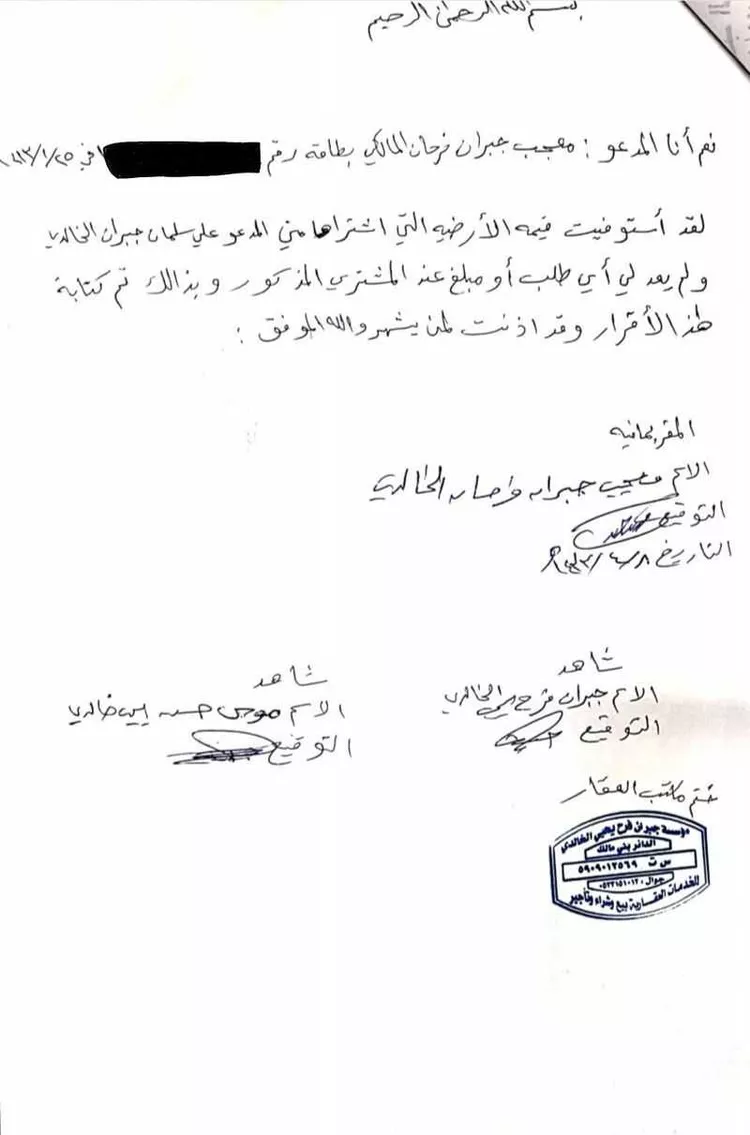 بسم الله الرحمن الرحيم
نعم أنا المدعو : معجب جبران فرحان المالكي بطاقة رقم في
لقد أستوفيت قيمه الأرضيه التي اشتراها مني المدعو علي سلمان جبران الخالدي
ولم يعد لي أي طلب أو مبلغ عند المشتري المذكور وبذالك تم كتابة
هذا الأقرار وقد اذنت لمن يشهد والله الموفق :
المقر بمافيه
الاسم معجب جبران الخالدي
التوقيع
التاريخ
شاهد
الاسم جبران فرح يحيى الخالدي
التوقيع
شاهد
الاسم موسى حسن خالدي
التوقيع
ختم مكتب العقار
مؤسسة جبران فرح يحيى الخالدي
الدائر بني مالك
س ت ٥٩٠٩٠١٢٥٦٩
جوال
للخدمات العقارية بيع وشراء وتأجير